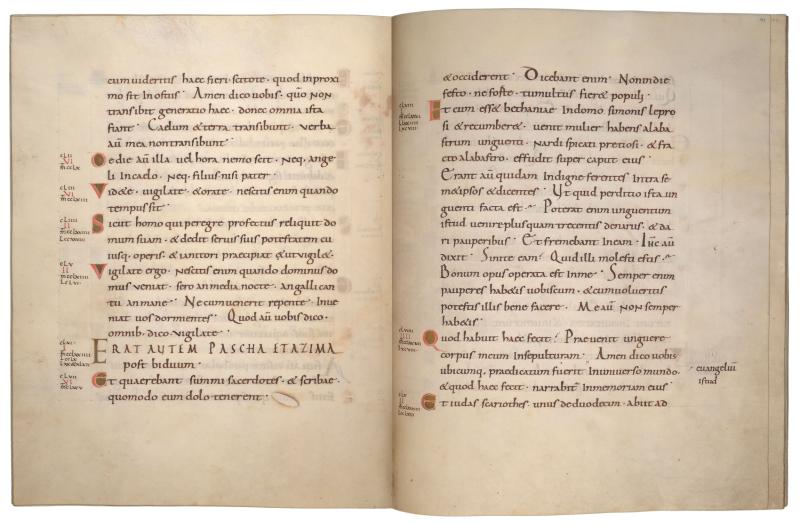 cum uideritis haec fieri · scitote · quod in proxi
mo sit In ostiis · Amen dico uobis · quo non
transibit generatio haec · donec omnia ista
fiant · Caelum & terra transibunt · uerba
au mea non transibunt
De die au illa uel hora nemo scit · Neq, ange
li In caelo · Neq, filius nisi pater ·
Vid&e · uigilate · & orate · nescitis enim quando
tempus sit ·
Sicut homo qui peregre profectus reliquit do
mum suam · & dedit seruis suis potestatem cu
iusq, operis · & ianitori praecipiat & ut uigil& ·
Vigilate ergo · Nescitis enim quando dominus do
mus ueniat · sero an media nocte · an galli can
tu an mane · Ne cum uenerit repente · Inue
niat uos dormientes · Quod au uobis dico ·
omnib, dico uigilate ·
ERAT AUTEM PASCHA ET AZIMA
post biduum ·
Et quaerebant summi sacerdotes · & scribae ·
quomodo eum dolo tenerent ·
& occiderent · Dicebant enim · Non in die
festo · ne forte · tumultus fier& populi ·
Et cum ess& bethaniae In domo simonis lepro
si & recumber& · uenit mulier habens alaba
strum unguenti · Nardi spicati pretiosi · & fra
cto alabastro · effudit super caput eius
Erant au quidam Indigne ferentes Intra se
m&ipsos & dicentes · Ut quid perditio ista un
guenti facta est · Poterat enim unguentum
istud uenire plusquam trecentis denariis · & da
ri pauperibus · Et fremebant In eam · Ihc au
dixit · Sinite eam · Quid illi molesti estis ·
Bonum opus operata est In me · Semper enim
pauperes hab&is uobiscum · & cum uolueritis
potestis illis bene facere · Me au non semper
hab&is ·
Quod habuit haec fecit · Praeuenit unguere
corpus meum In sepulturam · Amen dico uobis
ubicumq, praedicatum fuerit In uniuerso mundo ·
euangeliu
istud
& quod haec fecit · narrabit In memoriam eius
Et iudas scariothes · unus de duodecim · abiit ad